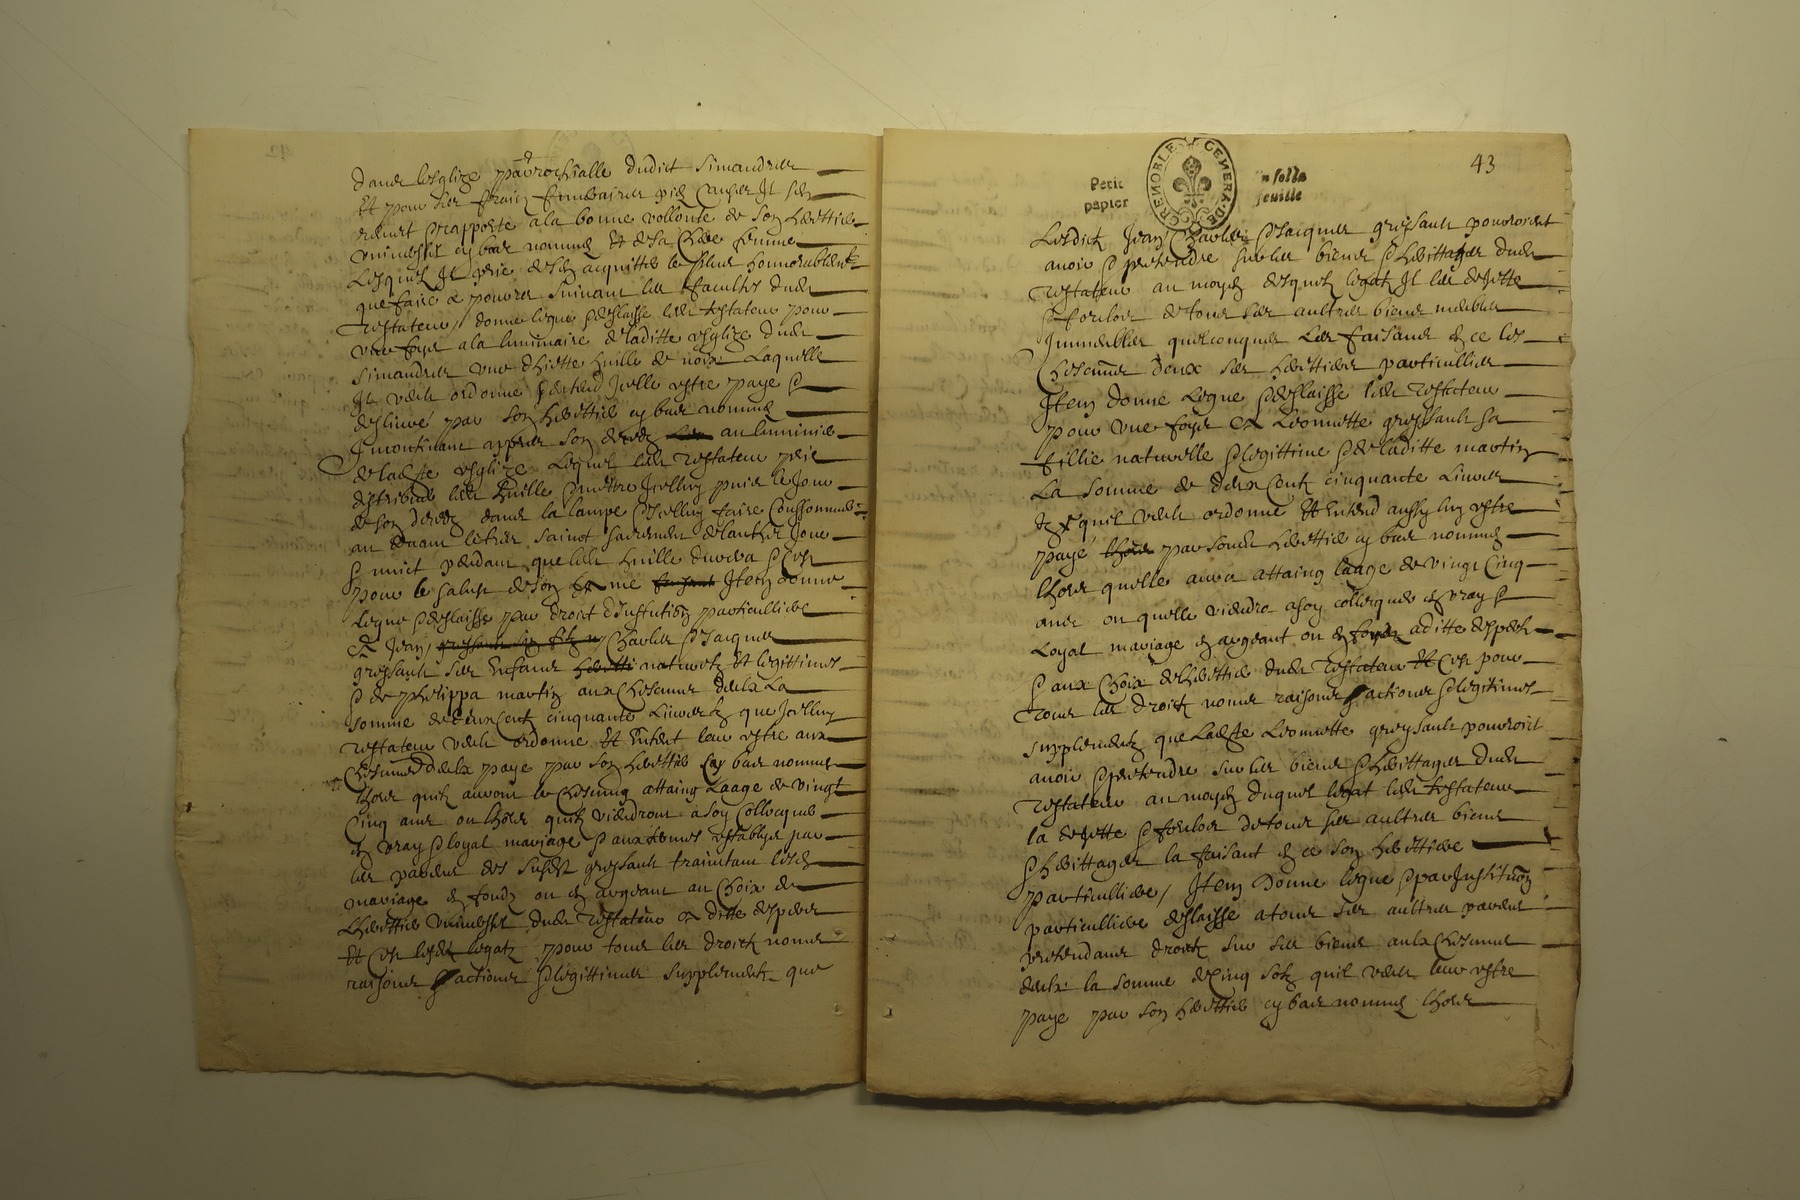 dans lesglize parrochialle dudict Simandres
Et pour ses frais funeraires pies causes Il sen
remet & rapporte a la bonne vollonte de son heritier
universel cy bas nomme Et de sa chere femme
Lesquelz Il prie de sen acquitter le plus honnorablemt
que faire ce pourra suivant les facultes dudt
testateur / donne legue & deslaisse ledt testateur pour
une foys a la luminaire de laditte esglize dudt
Simandres une huille de noix Laquelle
Il veult ordonne & entend Icelle estre paye &
deslivré par son heritier cy bas nomme
Incontinant appres son deces au luminier
de ladte esglize Lequel ledt testateur prie
ledt huille & mettre Icelluy puis le Jour
de son deces dans la lampe & Icelluy faire conssommer
au devant le tres sainct sacrement de lautier Jour
& nuict pendant que ledt huille durera & ce
pour le salut de son ame Item donne
legue & deslaisse par droict dinstitution particulliere
a Jean, Charles & Jacques
greysault ses enfans naturelz Et legittimes
& de Phelippa martin aux chescuns deulx La
somme de deux centz cinquante Livres que Icelluy
testateur veult ordonne Et Entent leur estre aux
chescuns deulx paye par son heritier cy bas nomme
lhors quilz auront le chescung attaing Laage de vingt
cinq ans ou lhors quilz viendront a soy collocquer
en vray & loyal mariage & aux termes establys par
les parens des susdt greysault traictant lesd
mariage en fondz ou en argeant au choix de
Lheritier universel dudt testateur a ditte despers
Et ce legatz pour tous les droictz noms
raisons & actions & legittimes supplementz que
43
Petit
papier
GRENOBLE GENERA. DE
n solla
feuille
Lesdictz Jean Charles & Jacques greysault pourroient
avoir & pretendre sur les biens & heritages dudt
Testateur au moyen desquelz legat Il les dejette
& forclos de tous ses aultres biens meubles
Immeubles quelconques les faisans en ce les
chescuns deux ses heritiers particulliers
Item donne legue & deslaisse ledt testateur
pour une foys a Leonnette greysault sa
fillie naturelle & legittime & de laditte martin
La somme de deux centz cinquante Livres
tz quil veult ordonne Et Entend aussy luy estre
paye par sondt heritier cy bas nomme
lhors quelle aura attaing laage de vingt cinq
ans ou quelle viendra a soy collocquer en vray &
Loyal mariage en argeant ou en a ditte despers
& aux choix de lheritier dudt testateur Et ce pour
tous les droictz noms raisons & actions & legitimes
supplementz que Ladte Leonnette greysault pourroict
avoir & pretendre sur les biens & heritages dudt
testateur au moyen duquel legat ledt testateur
la dejette & forclos de tous ses aultres biens
& heritages la faisant en ce son heritiere
particulliere / Item donne legue & par Institution
particulliere deslaisse a tous ses aultres parens
pretendans droict sur ses biens aulx chescuns
deulx la somme de cinq solz quil veult leur estre
paye par son heritier cy bas nomme lhors